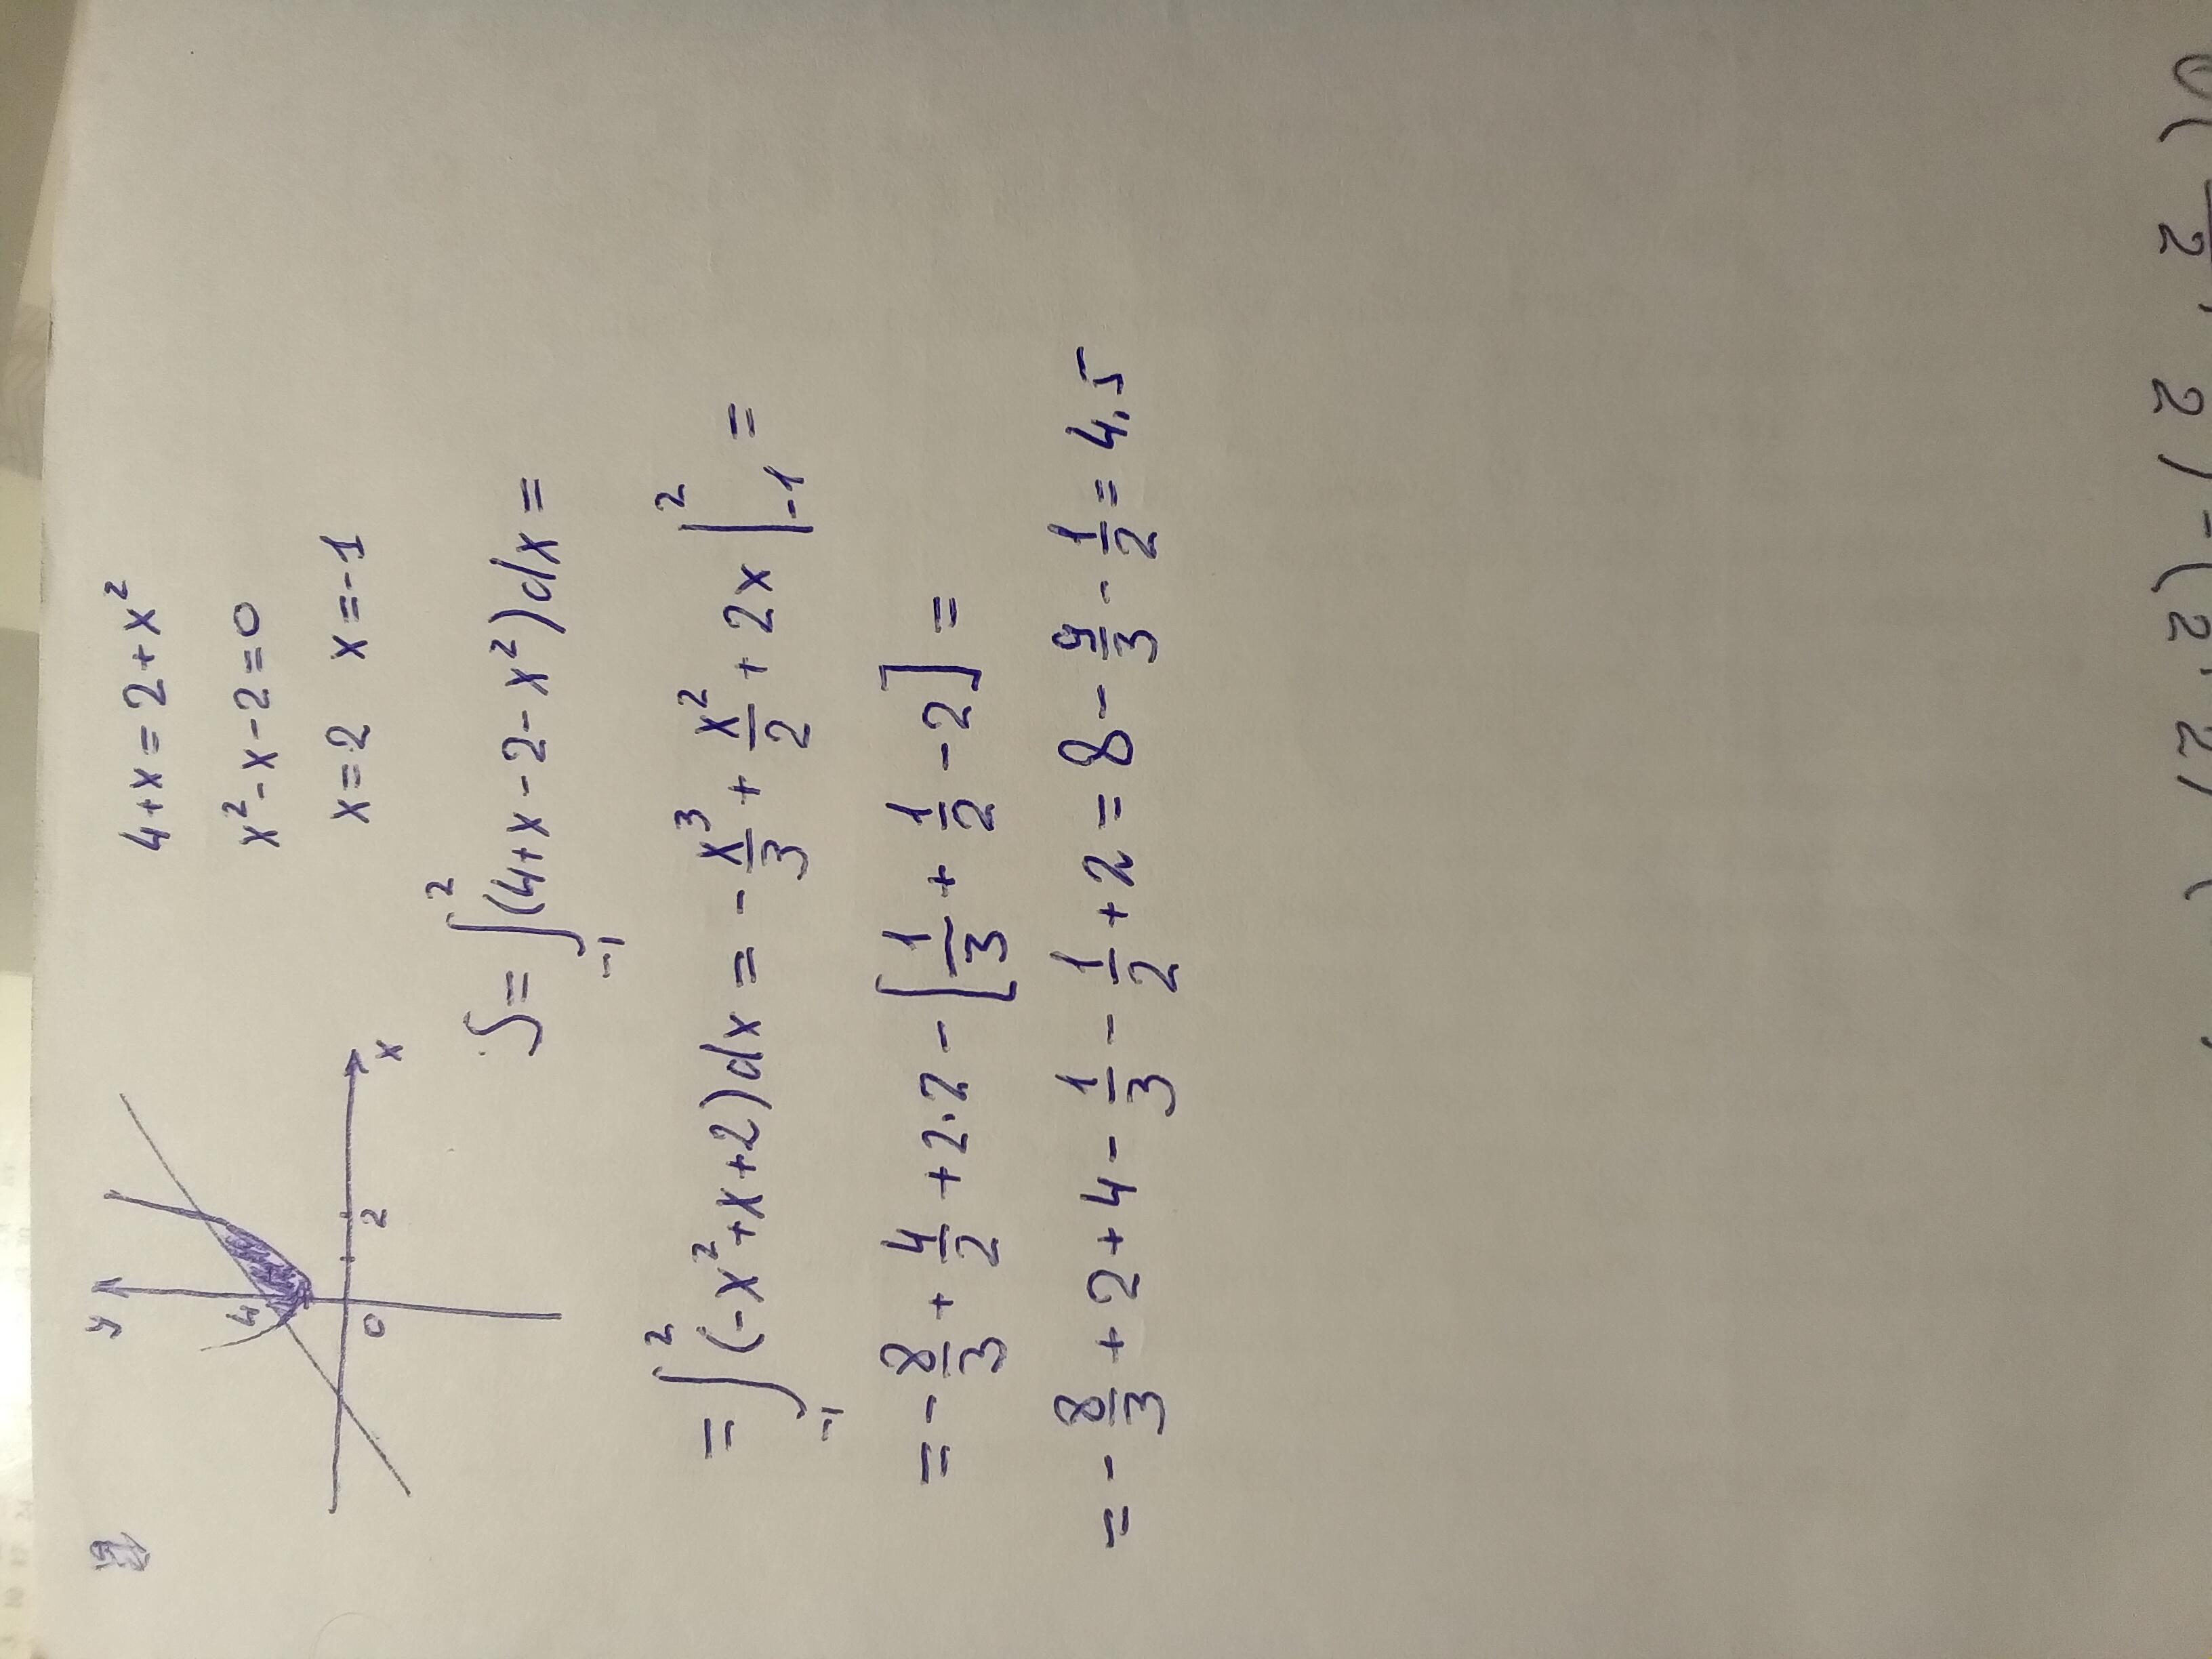 4+x=2+x²
x²-x-2=0
x=2 x=-1
y
4
0
2
x
S=∫₋₁²(4+x-2-x²)dx=
=∫₋₁²(-x²+x+2)dx=-x³/3+x²/2+2x|₋₁²=
=-8/3+4/2+2·2-[1/3+1/2-2]=
=-8/3+2+4-1/3-1/2+2=8-9/3-1/2=4,5